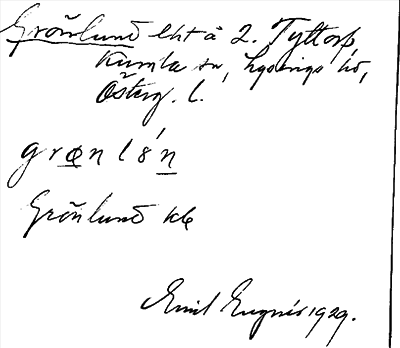 Grönlund lht å 2. Tyttorp,
Kumla sn, Lysings hd,
Österg. l.
grønlón
Grönlund kb
Emil Eugnér 1929.